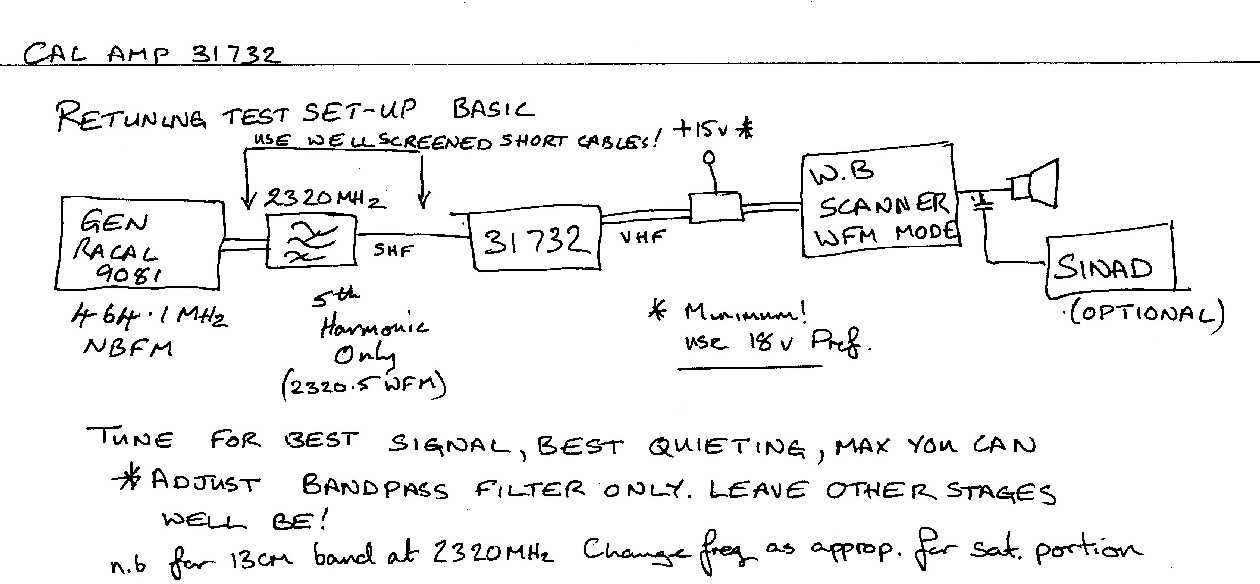 CAL AMP 31732
RETUNING TEST SET-UP BASIC
USE WELL SCREENED SHORT CABLES!
+15v *
2320MHz
GEN
RACAL
9081
SHF
31732
VHF
W.B
SCANNER
WFM MODE
SINAD
(OPTIONAL)
464.1MHz
NBFM
5th
Harmonic
Only
(2320.5 WFM)
* Minimum!
use 18v Pref.
TUNE FOR BEST SIGNAL, BEST QUIETING, MAX YOU CAN
* ADJUST BANDPASS FILTER ONLY. LEAVE OTHER STAGES
WELL BE!
n.b for 13cm band at 2320MHz Change freq as approp. for sat. portion